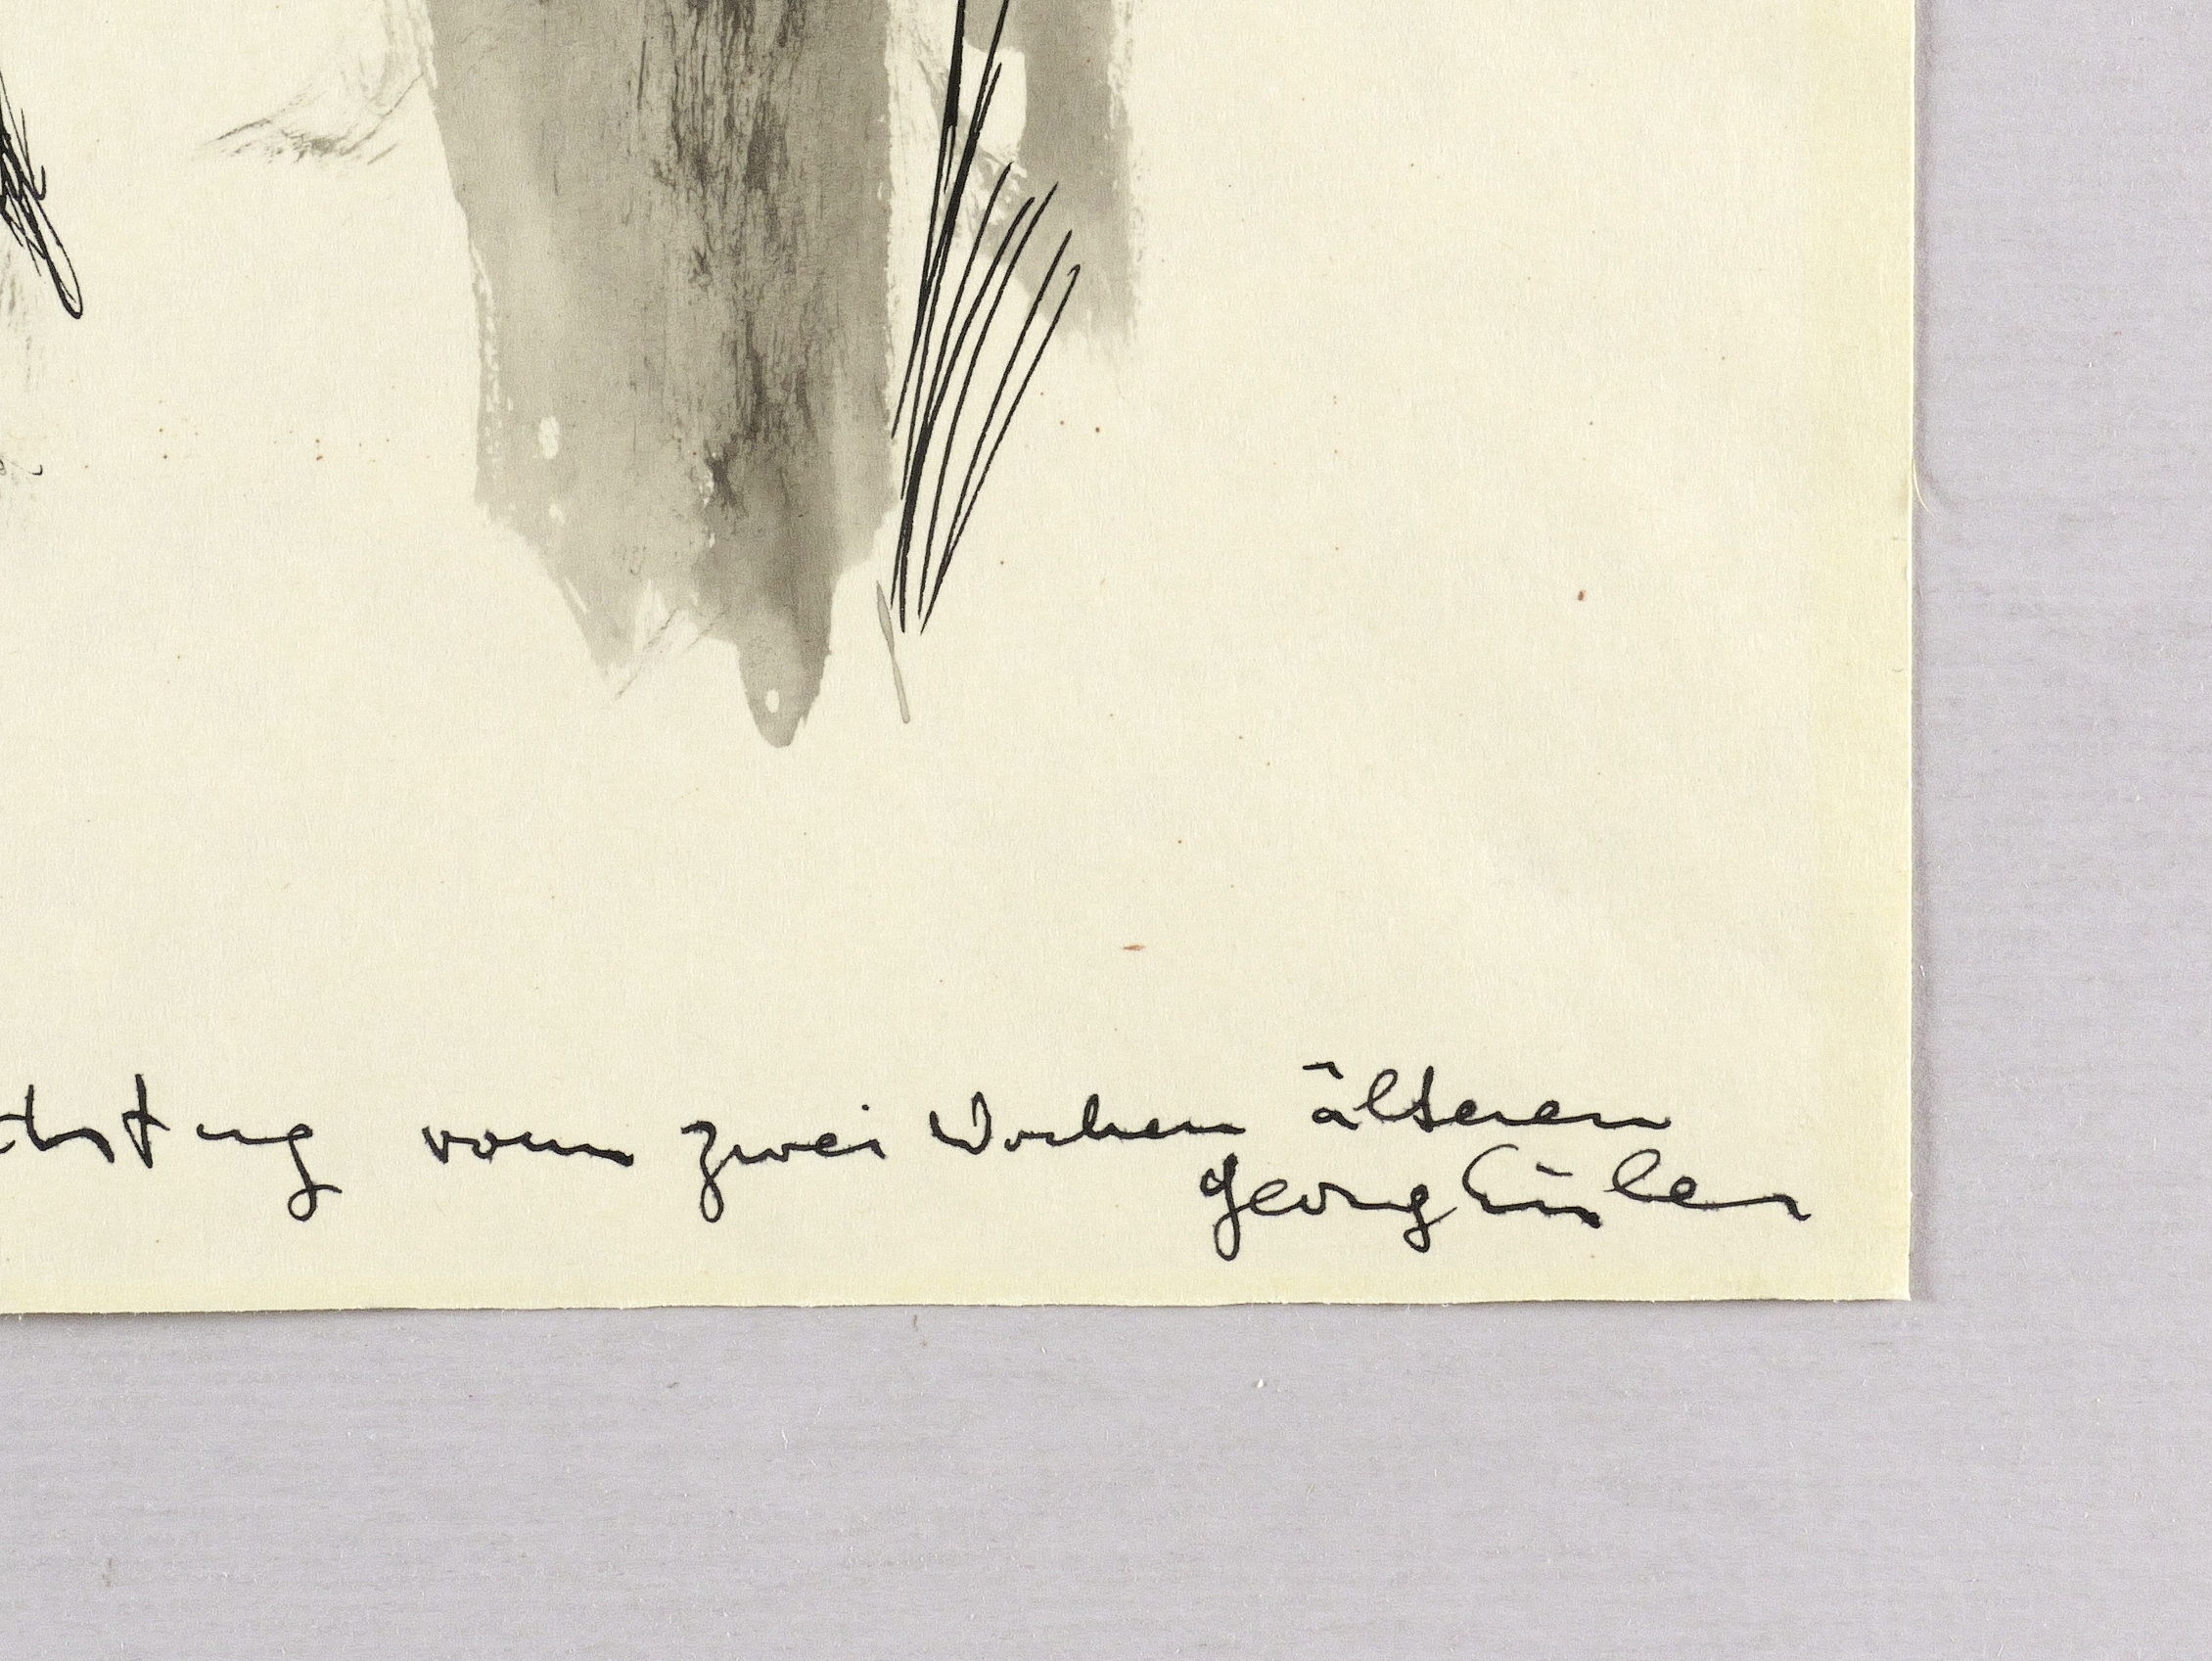 vom zwei Wochen älteren
Georg Eisler